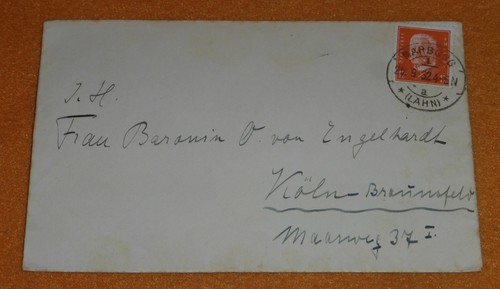 MARBURG
(LAHN)
a
J. H.
Frau Baronin O. von Engelhardt
Köln-Braunsfeld
Maarweg 37 I.